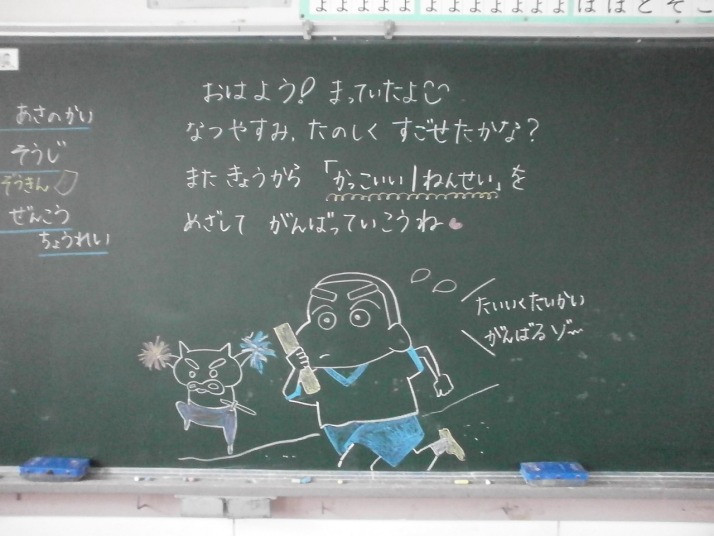 おはよう! まっていたよ
なつやすみ、たのしく すごせたかな?
また きょうから 「かっこいい1ねんせい」を
めざして がんばっていこうね
あさのかい
そうじ
ぞうきん
ぜんこう
ちょうれい
たいいくたいかい
がんばるゾ〜